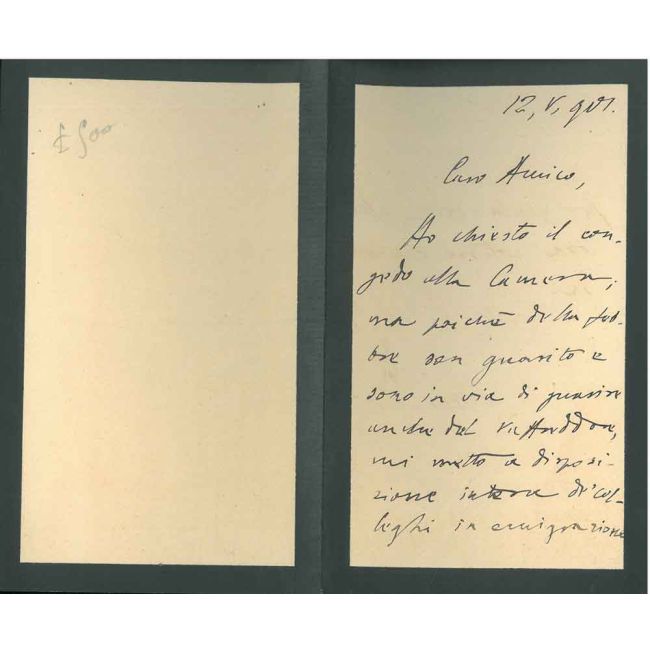 £ 500
12, V, 901.
Caro Amico,
Ho chiesto il con-
gedo alla Camera;
ma poiché della feb-
bre son guarito e
sono in via di guarire
anche dal raffreddore,
mi metto a disposi-
zione intera de' col-
leghi in emigrazione